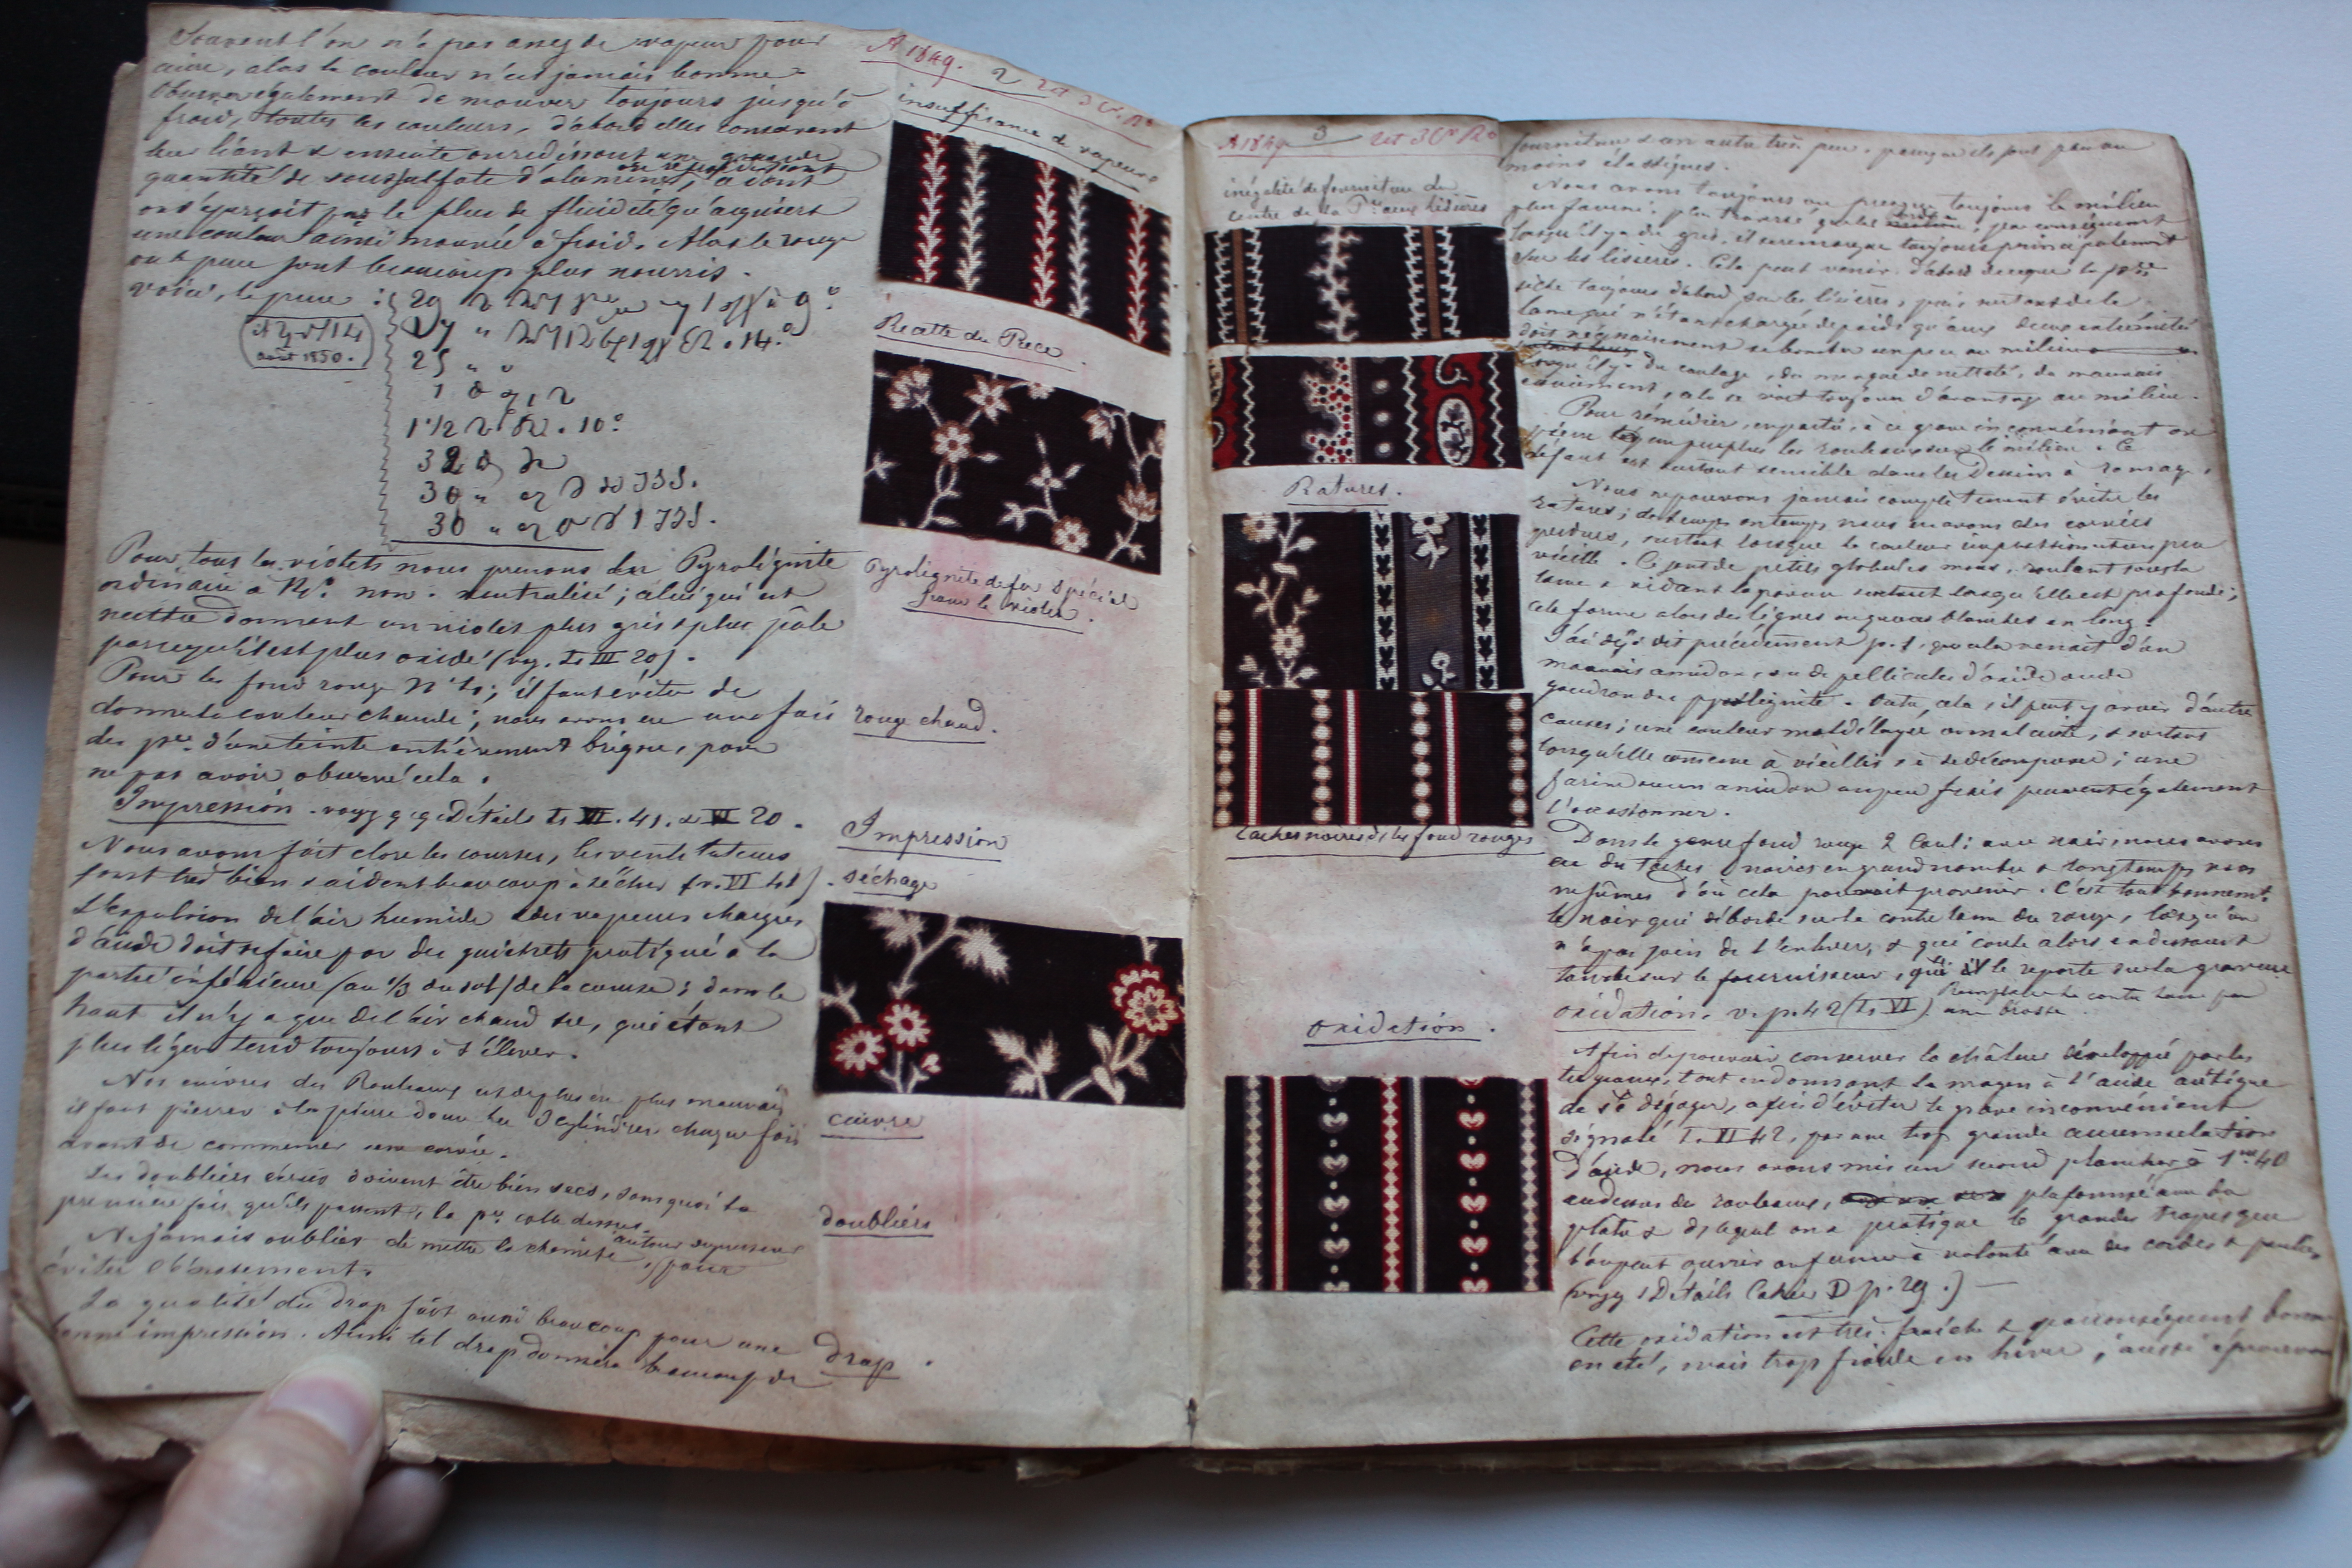 A 1849. 2 2 et 3 C. R.
Souvent l'on n'a pas assez de vapeur pour
cuire, alors la couleur n'est jamais bonne.
Observer également de mouver toujours jusqu'à
froid, toutes les couleurs, d'abord elles conservent
leur liant & ensuite on redissout une grande
quantité de soussulfate d'alumine, ce dont
on s'aperçoit par le plus de fluidité qu'acquiert
une couleur ainsi mouvée à froid. Alors le rouge
ou puce sont beaucoup plus nourris.
voici, le puce :
août 1850.
1 1/2 10°
Pour tous les violets nous prenons du Pyrolignite
ordinaire à non neutralisé ; celui qui est
neutre donnent un violet plus gris & plus pâle
parcequ'il est plus oxidé (voy. T. III 20).
Pour les fond rouge N° 40 ; il faut éviter de
donner la couleur chaude ; nous avons eu une fois
des p.ces d'une teinte entièrement brique, pour
ne pas avoir observé cela.
Impression - voyez q.q. Détails T. VI. 41. & VI 20.
Nous avons fait clore les courses, les ventilateurs
font très bien & aident beaucoup à sécher (v. VI 41).
L'expulsion de l'air humide & des vapeurs chargées
d'acide doit se faire par des guichets pratiqué à la
partie inférieure (au 1/3 du sol) de la course ; dans le
haut il n'y a que de l'air chaud sec, qui étant
plus léger tend toujours à s'élever.
Nos cuivres des Rouleaux est de plus en plus mauvais
il faut pierrer à la pierre douce les 3 cylindres chaque fois
avant de commencer une corvée.
Les doubliers écrus doivent être bien secs, sans quoi la
première fois qu'ils passent, la p.ce colle dessus.
Ne jamais oublier de mettre la chemise autour du presseur, pour
éviter l'écrasement.
La qualité du drap fait aussi beaucoup pour une
bonne impression. Ainsi tel drap donnera beaucoup de
insuffisance de vapeurs
Recette du Puce
Pyrolignite de fer Spécial
pour le violet.
rouge chaud.
Impression
séchage
cuivre
doubliers
drap.
A 1849 3 2 et 3 C. R.
inégalité de fourniture du
centre de la P.ce aux lisières
Ratures.
taches noires ds les fond rouges
oxidation.
fourniture & un autre très peu, parcequ'ils sont plus ou
moins élastiques.
Nous avons toujours ou presque toujours le milieu
plus fourni, plus traversé que les bords, par conséquent
lorsqu'il y a du gris, il se remarque toujours principalement
sur les lisières. Cela peut venir d'abord de ce que la p.ce
sèche toujours d'abord sur les lisières, puis surtout de la
lame qui n'étant chargée de poids qu'aux deux extrémités
doit nécessairement se bomber un peu au milieu
lorsqu'il y a du coulage, du manque de netteté, du mauvais
essuiement, cela se voit toujours d'avantage au milieu.
Pour remédier, en partie, à ce grave inconvénient on
pierre un peu plus les rouleaux sur le milieu. Ce
défaut est surtout sensible dans les Dessins à ramage.
Nous ne pouvons jamais complètement éviter les
ratures ; de temps en temps nous en avons des corvées
perdues, surtout lorsque la couleur impression est un peu
vieille. Ce sont de petits globules mous, roulant sous la
lame & vidant la gravure surtout lorsqu'elle est profonde ;
cela forme alors des lignes aigues blanches en long.
J'ai déjà dit précédemment p. 1, que cela venait d'un
mauvais amidon, ou de pellicules d'oxide ou de
goudron du pyrolignite. Outre cela, il peut y avoir d'autre
causes ; une couleur mal délayée ou mal cuite, & surtout
lorsqu'elle commence à vieillir & à se décomposer ; une
farine ou un amidon un peu frais peuvent également
l'occasionner.
Dans le genre fond rouge 2 Coul: avec noir nous avons
eu des taches noires en grand nombre & longtemps nous
ne sûmes d'où cela pouvait provenir. C'est tout bonnement
le noir qui déborde sur la contre lame du rouge, lorsqu'on
n'a pas soin de l'enlever, & qui coule alors en dessous et
tombe sur le fournisseur, qui le reporte sur la gravure
Remplacer la contre lame par
oxidation. v. p. 42 (T. VI). une brosse.
Afin de pouvoir conserver la chaleur développée par les
tuyaux, tout en donnant le moyen à l'acide acétique
de se dégager, afin d'éviter le grave inconvénient
signalé T. VI 42, par une trop grande accumulation
d'acide, nous avons mis un second plancher à 1m 40
au dessus des rouleaux, plafonné avec du
platre & dans lequel on a pratiqué 6 grandes trapes que
l'on peut ouvrir ou fermer à volonté avec des cordes & poulies
(voyez Détails Cahier D p. 29.)
Cette oxidation est très fraîche & par conséquent bonne
en été, mais trop froide en hiver ; aussi éprouvons